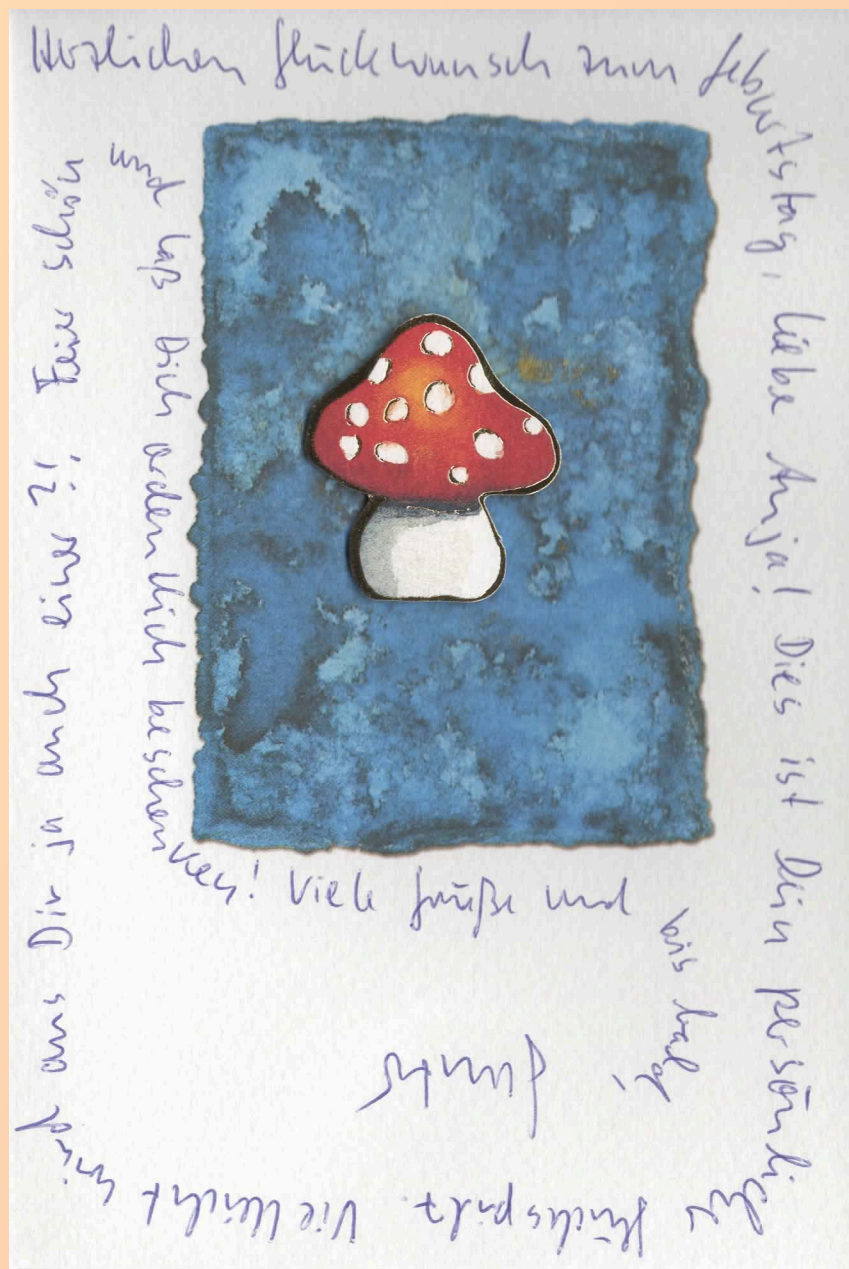 Herzlichen Glückwunsch zum Geburtstag, liebe Anja! Dies ist Dein persönlicher Glückspilz. Vielleicht wird aus Dir ja auch einer?! Feier schön
und laß Dich ordentlich beschenken! Viele Grüße und bis bald!